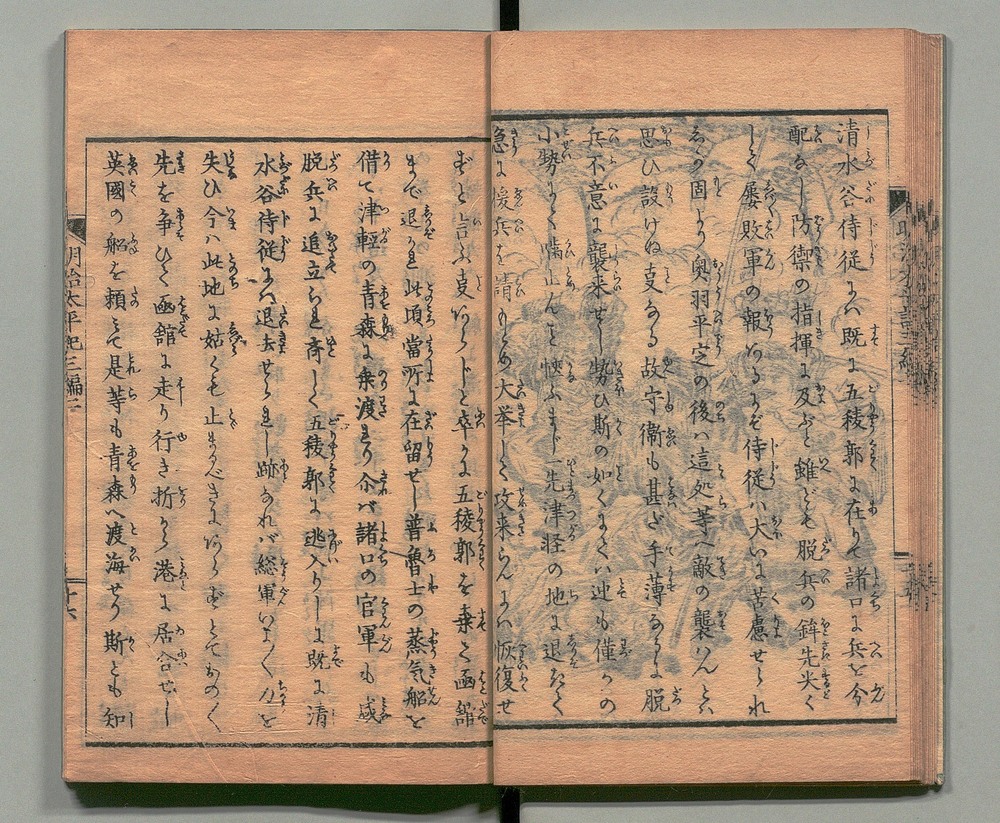 清水谷侍従にハ既に五稜郭に在りて諸口に兵を分
配なし防禦の指揮に及ぶと雖ども脱兵の鉾先尖く
して屡敗軍の報のあるにぞ侍従ハ大いに苦慮せられ
固より奥羽平定の後ハ這処等へ敵の襲ハんとハ
思ひ設けぬ叓なる故守衛も甚だ手薄なるに脱
兵不意に襲来せし勢ひ斯の如くにてハ迚も僅かの
小勢にて喰止んこと協ふまじ一先津軽の地に退きて
急に援兵を請もとめ大挙して攻来らんにハ恢復せ
ずと言ふ叓あらじと卒かに五稜郭を棄て函館
まで退かれ此頃當所に在留せし普魯士の蒸気船を
借て津軽の青森に乗渡より介バ諸口の官軍も咸
脱兵に追立られ斉しく五稜郭に逃入りしに既に清
水谷侍従にハ退去せられし跡なれバ総軍いよ〳〵力を
失ひ今ハ此地に姑くも止まるべきにあらずとておの〳〵
先を争ひて函館に走り行き折から港に居合せし
英國の船を頼ミて是等も青森へ渡海せり斯とも知
明治太平記三編二
十六